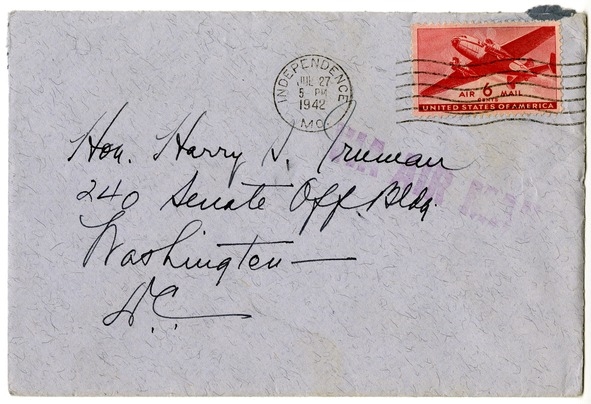 INDEPENDENCE
JUL 27
5 PM
1942
MO.
AIR 6 MAIL
CENTS
UNITED STATES OF AMERICA
VIA AIR MAIL
Hon. Harry S. Truman
240 Senate Off. Bldg.
Washington —
D.C.